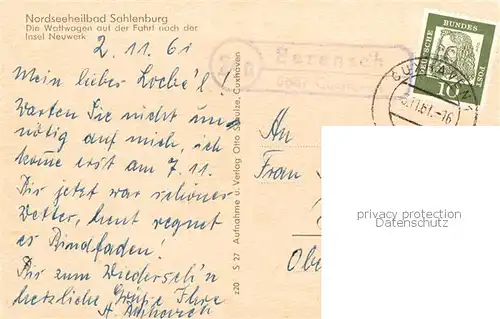 Nordseeheilbad Sahlenburg
Die Wattwagen auf der Fahrt nach der
Insel Neuwerk
2.11.61
Mein lieber
Warten Sie nicht un-
nötig auf mich, ich
komme erst am 7.11.
Bis jetzt war schönes
Wetter, heut regnet
es Bindfaden!
Bis zum Wiederseh'n
herzliche Grüße Ihre
z20 S 27 Aufnahme u. Verlag Otto Schulze, Cuxhaven
Berensch
über Cuxh
CUXHAVEN
.11.61.-16
DEUTSCHE BUNDES POST
10
An
Frau
Obe
privacy protection
Datenschutz